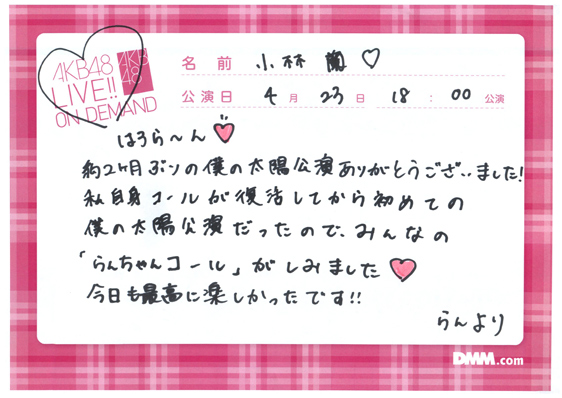 AKB48
LIVE!!
ON DEMAND
AKB
48
名前 小林 蘭 ♡
公演日 4月23日 18:00 公演
はろら〜ん
約2ヶ月ぶりの僕の太陽公演ありがとうございました!
私自身コールが復活してから初めての
僕の太陽公演だったので、みんなの
「らんちゃんコール」がしみました
今日も最高に楽しかったです!!
らんより
DMM.com